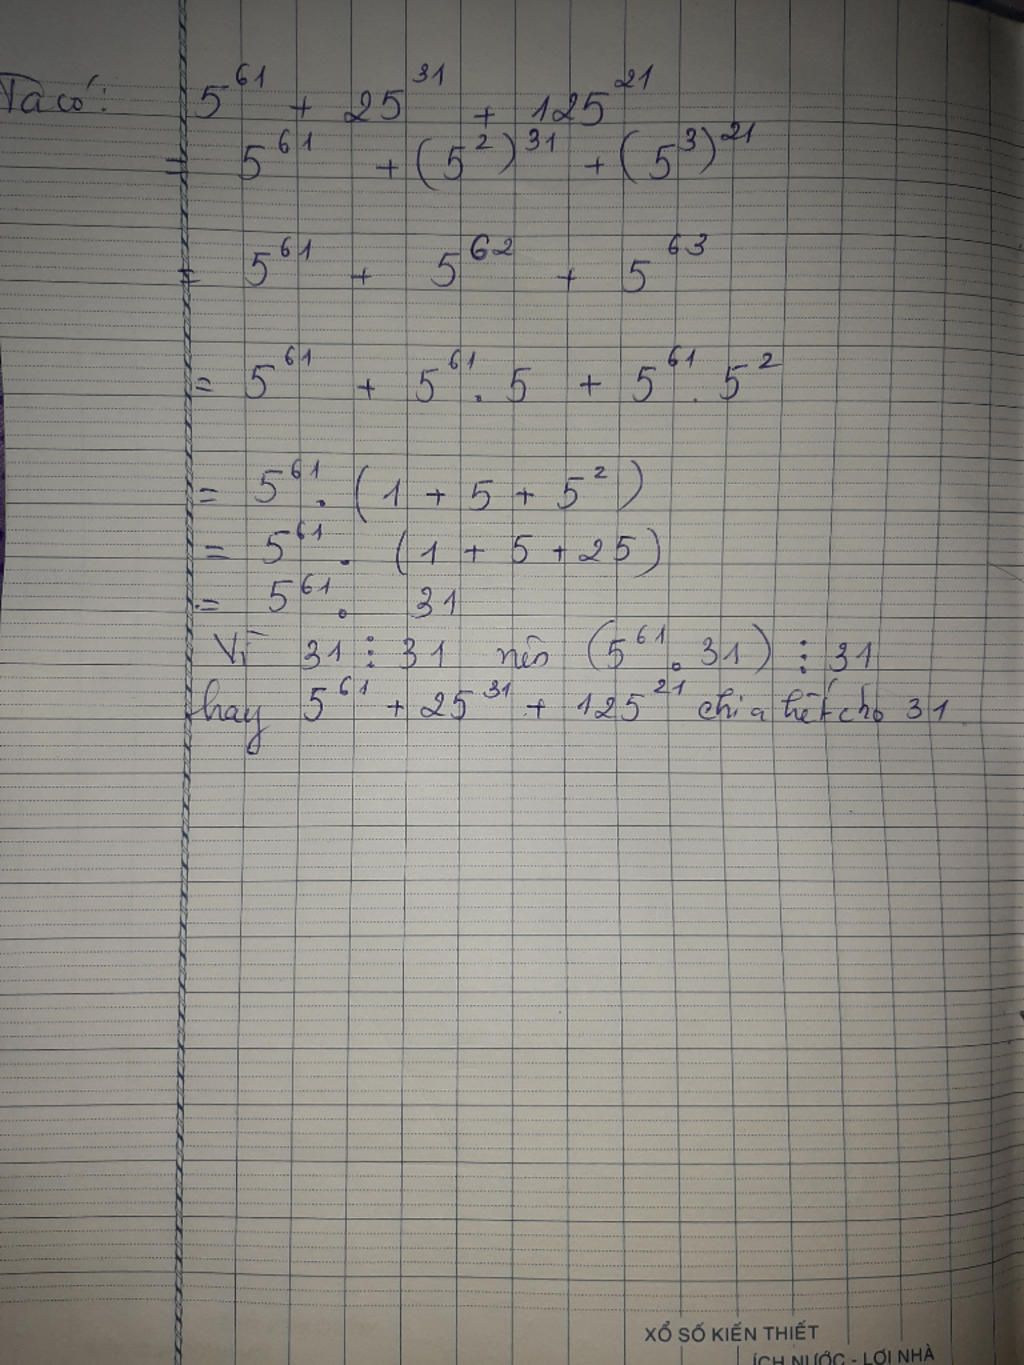 Ta có: 5^61 + 25^31 + 125^21
= 5^61 + (5^2)^31 + (5^3)^21
= 5^61 + 5^62 + 5^63
= 5^61 + 5^61 . 5 + 5^61 . 5^2
= 5^61 . (1 + 5 + 5^2)
= 5^61 . (1 + 5 + 25)
= 5^61 . 31
Vì 31 ⋮ 31 nên (5^61 . 31) ⋮ 31
hay 5^61 + 25^31 + 125^21 chia hết cho 31
XỔ SỐ KIẾN THIẾT
ÍCH NƯỚC - LỢI NHÀ